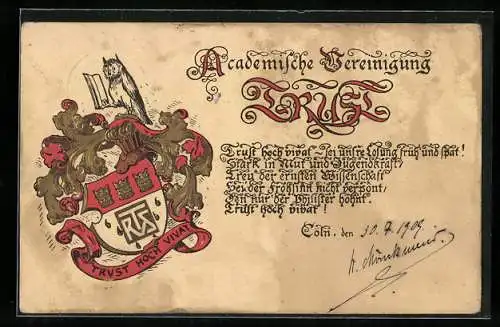 Academische Vereinigung
TRUST
Trust hoch vivat – sei unsre Losung früh und spat!
Stark in Mut und Jugendkraft,
Treu der ernsten Wissenschaft
Bei der Frohsinn nicht verpönt,
Den nur der Philister höhnt.
Trust hoch vivat!
Cöln, den 30. 7. 1909.
TRUST HOCH VIVAT